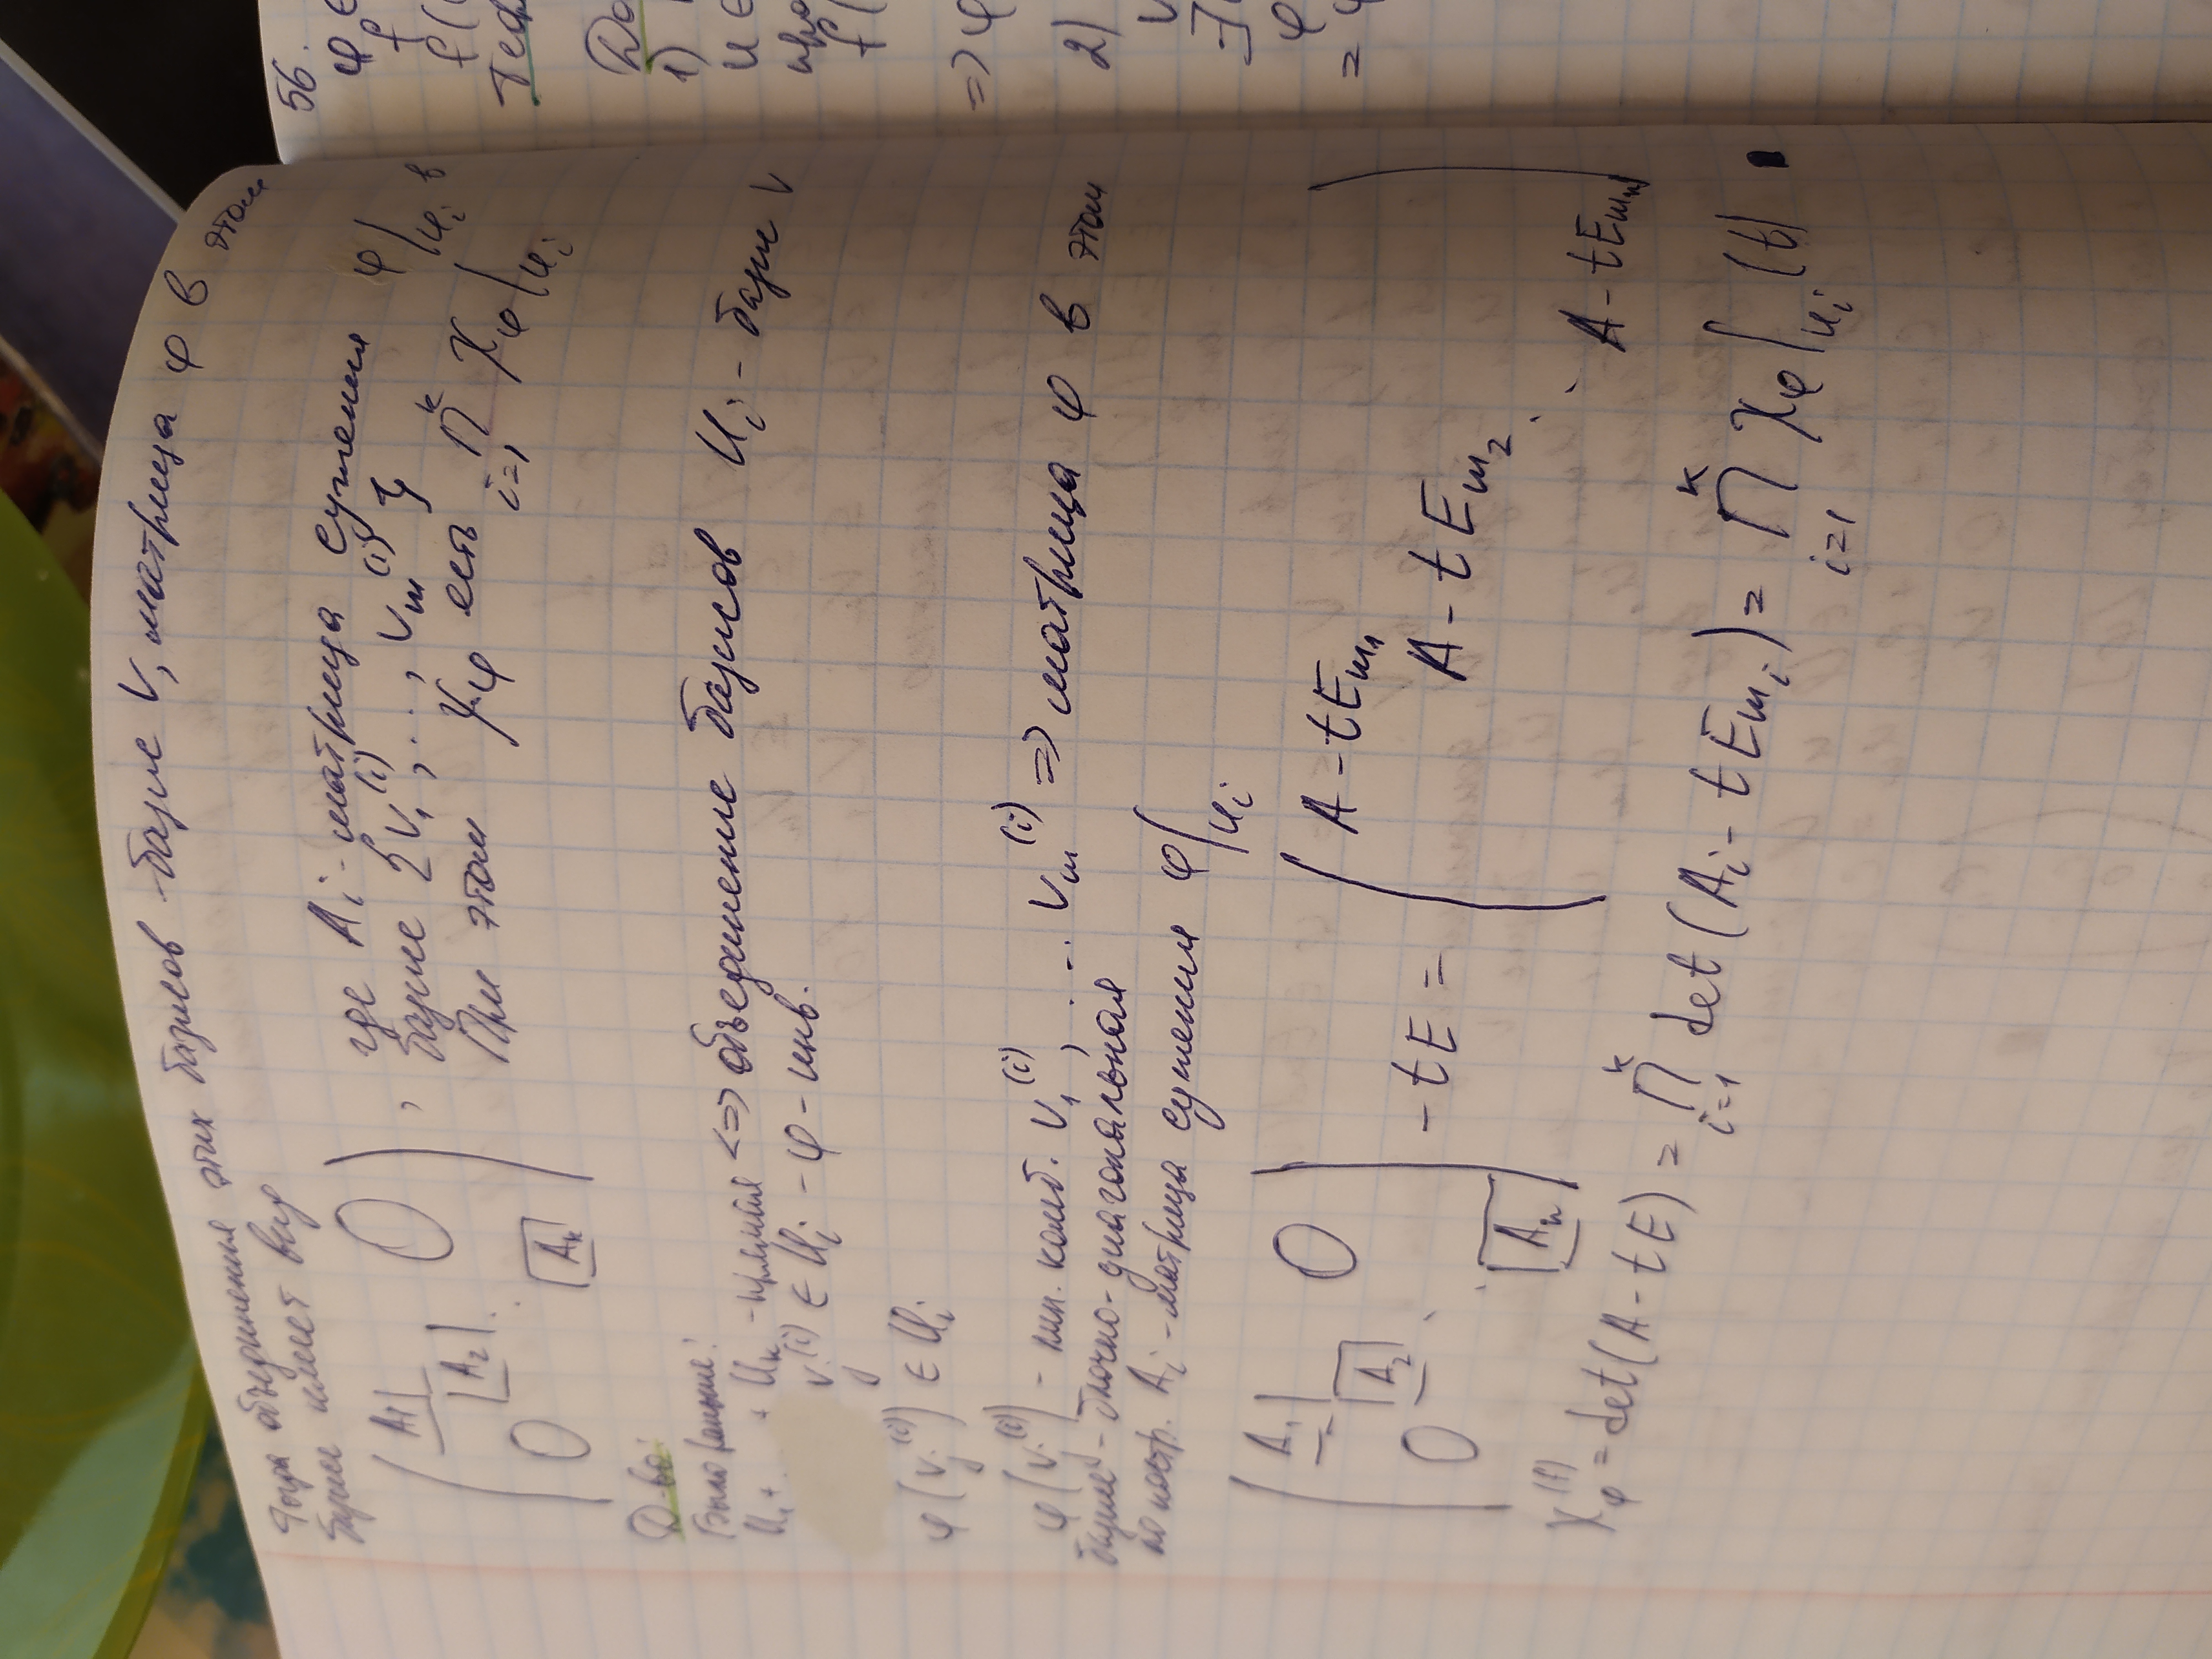 Тогда объединения этих базисов - базис V, матрица φ в этом
базисе имеет вид
( A₁ A₂ Aₖ O O ) , где Aᵢ - матрица сужения φ|uᵢ в
базисе {v₁⁽ⁱ⁾, ..., vₘ⁽ⁱ⁾}
При этом χφ есть ∏ᵏᵢ₌₁ χφ|uᵢ
Д-во:
Было раньше:
U₁ + + Uₙ - прямая <=> объединение базисов Uᵢ - базис V
vⱼ⁽ⁱ⁾ ∈ Uᵢ - φ - инв.
φ(vⱼ⁽ⁱ⁾) ∈ Uᵢ
φ(vⱼ⁽ⁱ⁾) - лин. комб. v₁⁽ⁱ⁾, ... vₘ⁽ⁱ⁾ => матрица φ в этом
базисе - блочно-диагональная
по постр. Aᵢ - матрица сужения φ|uᵢ
( A₁ A₂ Aₙ O O ) - tE = ( A - tEₘ₁ A - tEₘ₂ A - tEₘₙ )
χφ(t) = det(A - tE) = ∏ᵏᵢ₌₁ det(Aᵢ - tEₘᵢ) = ∏ᵏᵢ₌₁ χφ|uᵢ(t)
56.
φ
Теор
1)
=> φ
2)